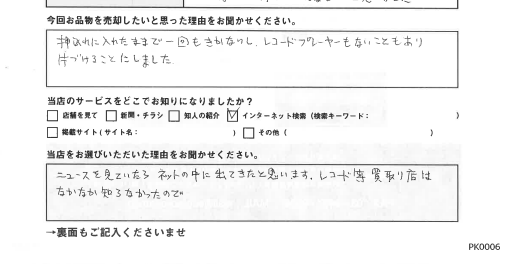 今回お品物を売却したいと思った理由をお聞かせください。
押入れに入れたままで一回もきかないし、レコードプレーヤーもないこともあり
片づけることにしました
当店のサービスをどこでお知りになりましたか？
□ 店舗を見て □ 新聞・チラシ □ 知人の紹介 ☑ インターネット検索（検索キーワード： ）
□ 掲載サイト（サイト名： ） □ その他（ ）
当店をお選びいただいた理由をお聞かせください。
ニュースを見ていたら ネットの中に出てきたと思います。レコード等 買取り店は
なかなか知らなかったので
→裏面もご記入くださいませ
PK0006